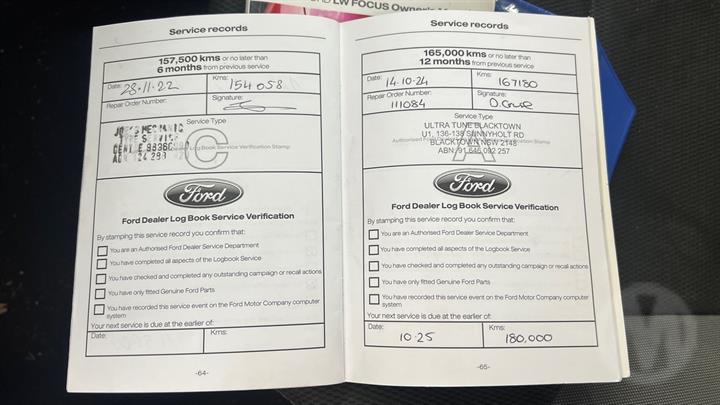 LW FOCUS Owner's
Service records
157,500 kms or no later than
6 months from previous service
Date: 28·11·22
Kms: 154058
Repair Order Number:
Signature:
Service Type
C
Log Book Service Verification Stamp
Ford
Ford Dealer Log Book Service Verification
By stamping this service record you confirm that:
You are an Authorised Ford Dealer Service Department
You have completed all aspects of the Logbook Service
You have checked and completed any outstanding campaign or recall actions
You have only fitted Genuine Ford Parts
You have recorded this service event on the Ford Motor Company computer
system
Your next service is due at the earlier of:
Date:
Kms:
-64-
Service records
165,000 kms or no later than
12 months from previous service
Date: 14·10·24
Kms: 167180
Repair Order Number:
111084
Signature:
Service Type
ULTRA TUNE BLACKTOWN
U1, 136-138 SUNNYHOLT RD
BLACKTOWN NSW 2148
ABN: 91 646 092 257
A
Ford
Ford Dealer Log Book Service Verification
By stamping this service record you confirm that:
You are an Authorised Ford Dealer Service Department
You have completed all aspects of the Logbook Service
You have checked and completed any outstanding campaign or recall actions
You have only fitted Genuine Ford Parts
You have recorded this service event on the Ford Motor Company computer
system
Your next service is due at the earlier of:
Date:
10·25
Kms:
180,000
-65-